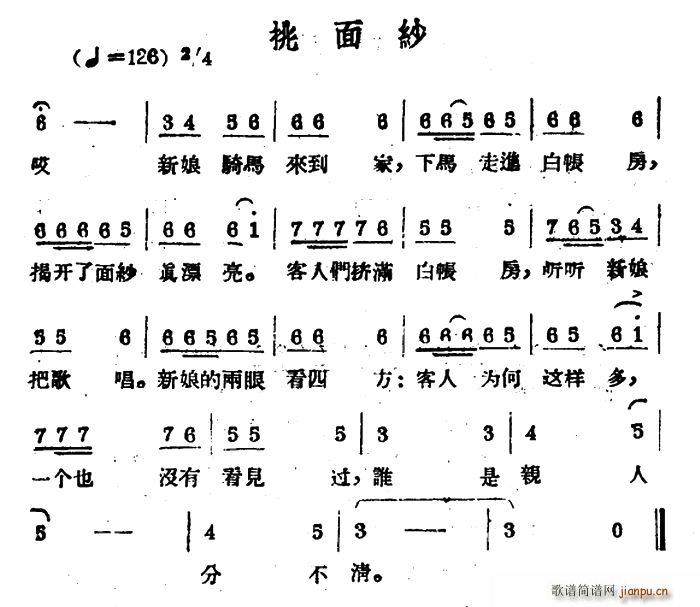 桃面紗
(♩=126) 2/4
6 — | 3 4 5 6 | 6 6 6 | 6 6 5 6 5 | 6 6 6 |
哎 新娘 騎馬 來到 家，下馬 走進 白帳 房，
6 6 6 6 5 | 6 6 6 i | 7 7 7 7 6 | 5 5 5 | 7 6 5 3 4 |
揭开了面紗 眞漂 亮。 客人們挤滿 白帳 房，听听 新娘
5 5 6 | 6 6 5 6 5 | 6 6 6 | 6 6 6 6 5 | 6 5 6 i |
把歌 唱。新娘的兩眼 看四 方：客人 为何 这样 多，
7 7 7 7 6 | 5 5 5 | 3 3 | 4 5 |
一个也 沒有 看見 过，誰 是親 人
5 — — | 4 5 | 3 — — | 3 0 ‖
分 不 淸。
歌谱简谱网
jianpu.cn